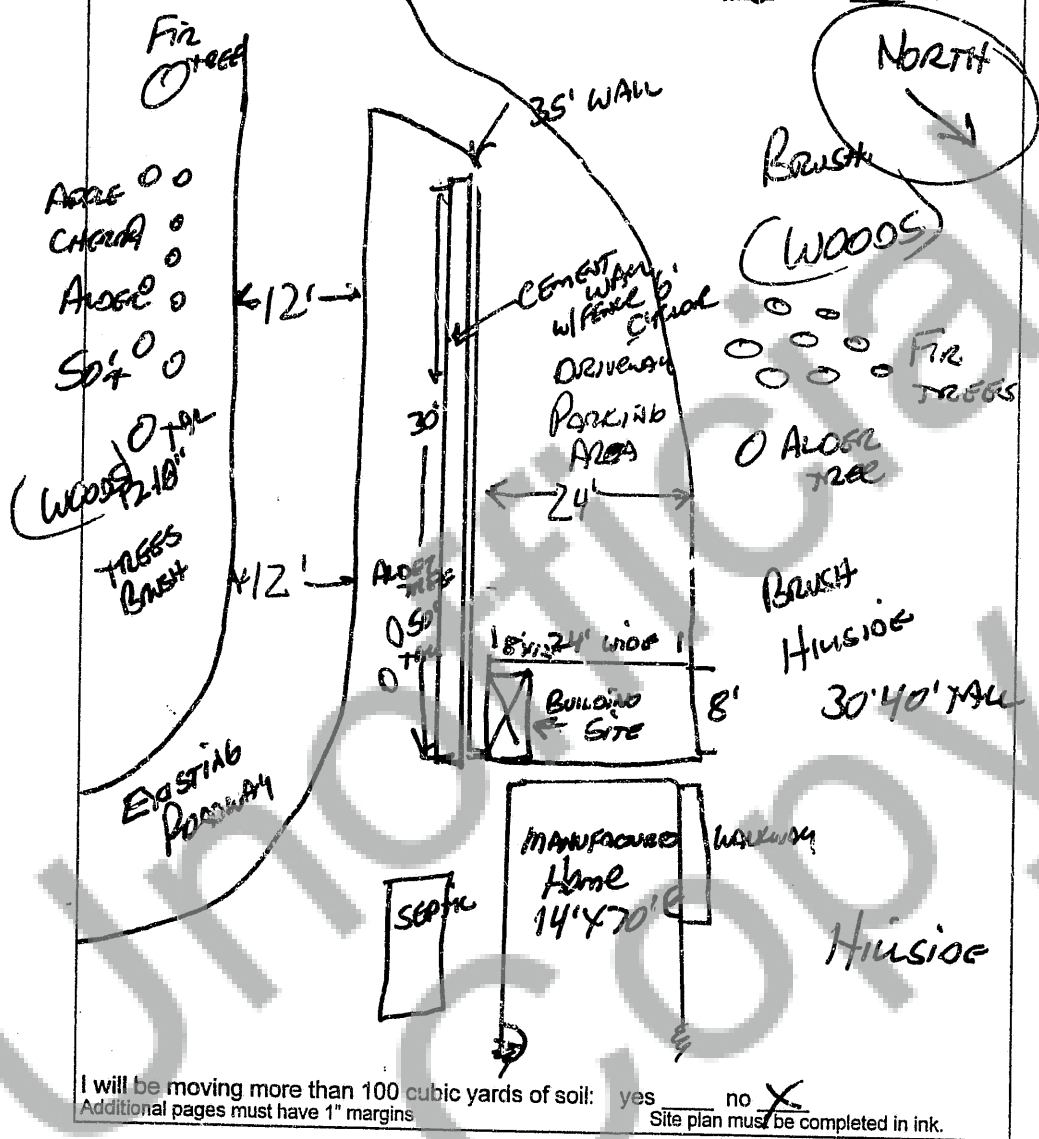 FIR
TREE
NORTH
35' WALL
BRUSH
(WOODS)
APPLE
CHERRY
ALDER
50'+
12'
CEMENT
WALL
W/FENCE 6'
DRIVEWAY
PARKING
AREA
24'
FIR
TREES
30'
O ALDER
TREE
(WOODS)
TREES
BRUSH
12'
ALDER
TREE
50'
BRUSH
HILLSIDE
30'40' TALL
24' WIDE
BUILDING
SITE
8'
EXISTING
ROADWAY
MANUFACTURED
Home
14'X70'
WALKWAY
SEPTIC
HILLSIDE
I will be moving more than 100 cubic yards of soil: yes ____ no X
Additional pages must have 1" margins
Site plan must be completed in ink.
Unofficial
Copy